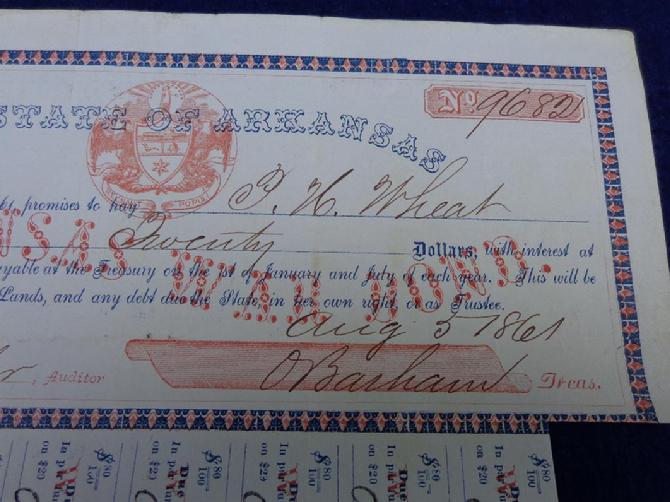 No. 9682
STATE OF ARKANSAS
promises to pay P. H. Wheat
Twenty Dollars, with interest at
payable at the Treasury on the 1st of January and July of each year. This will be
Lands, and any debt due the State, in her own right, or as Trustee.
NSAS WAR BOND.
Aug 5 1861
, Auditor O Basham Treas.
$ 80/100 $ 80/100 $ 80/100 $ 80/100 $ 80/100
Due Due Due
In pa on $20 In pa on $20 In pa on $20 In pa on $20 In pa on $20